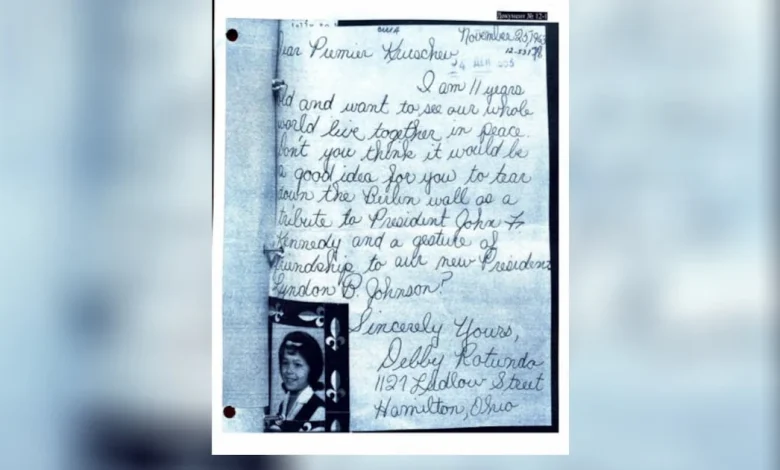 Документ № 12-1
США
November 25, 1963
Dear Premier Kruschev,
I am 11 years
old and want to see our whole
world live together in peace.
Don't you think it would be
a good idea for you to tear
down the Berlin wall as a
tribute to President John F.
Kennedy and a gesture of
friendship to our new President
Lyndon B. Johnson?
Sincerely Yours,
Debby Rotundo
1127 Ludlow Street
Hamilton, Ohio